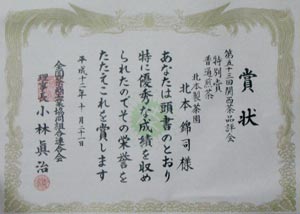 賞状
第五十三回関西茶品評会
特別賞
普通煎茶
北本製茶園
北本錦司様
あなたは頭書のとおり
特に優秀な成績を収め
られたのでその栄誉を
たたえこれを賞します
平成十二年十月二十一日
全国茶商工業協同組合連合会
理事長 小林真治